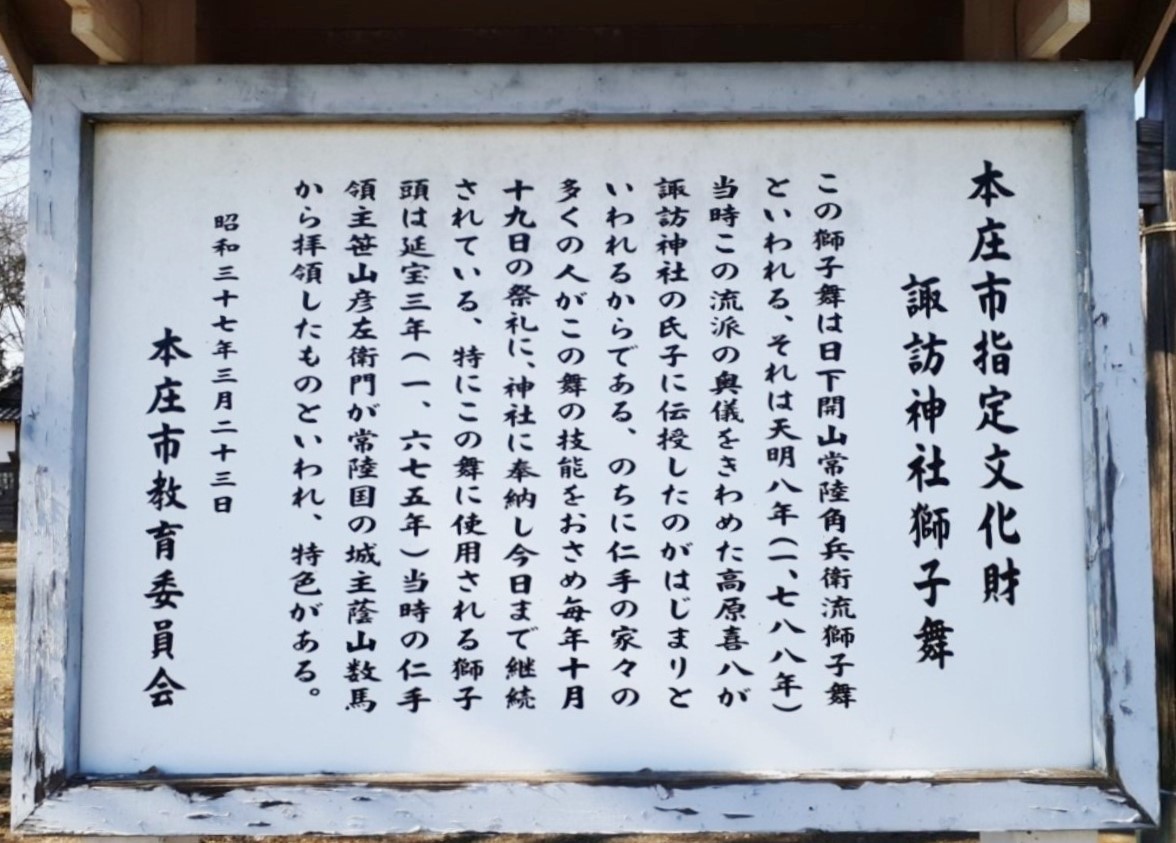 本庄市指定文化財
諏訪神社獅子舞
この獅子舞は日下開山常陸角兵衛流獅子舞
といわれる、それは天明八年(一、七八八年)
当時この流派の奥儀をきわめた高原喜八が
諏訪神社の氏子に伝授したのがはじまりと
いわれるからである、のちに仁手の家々の
多くの人がこの舞の技能をおさめ毎年十月
十九日の祭礼に、神社に奉納し今日まで継続
されている、特にこの舞に使用される獅子
頭は延宝三年(一、六七五年)当時の仁手
領主笹山彦左衛門が常陸国の城主蔭山数馬
から拝領したものといわれ、特色がある。
昭和三十七年三月二十三日
本庄市教育委員会